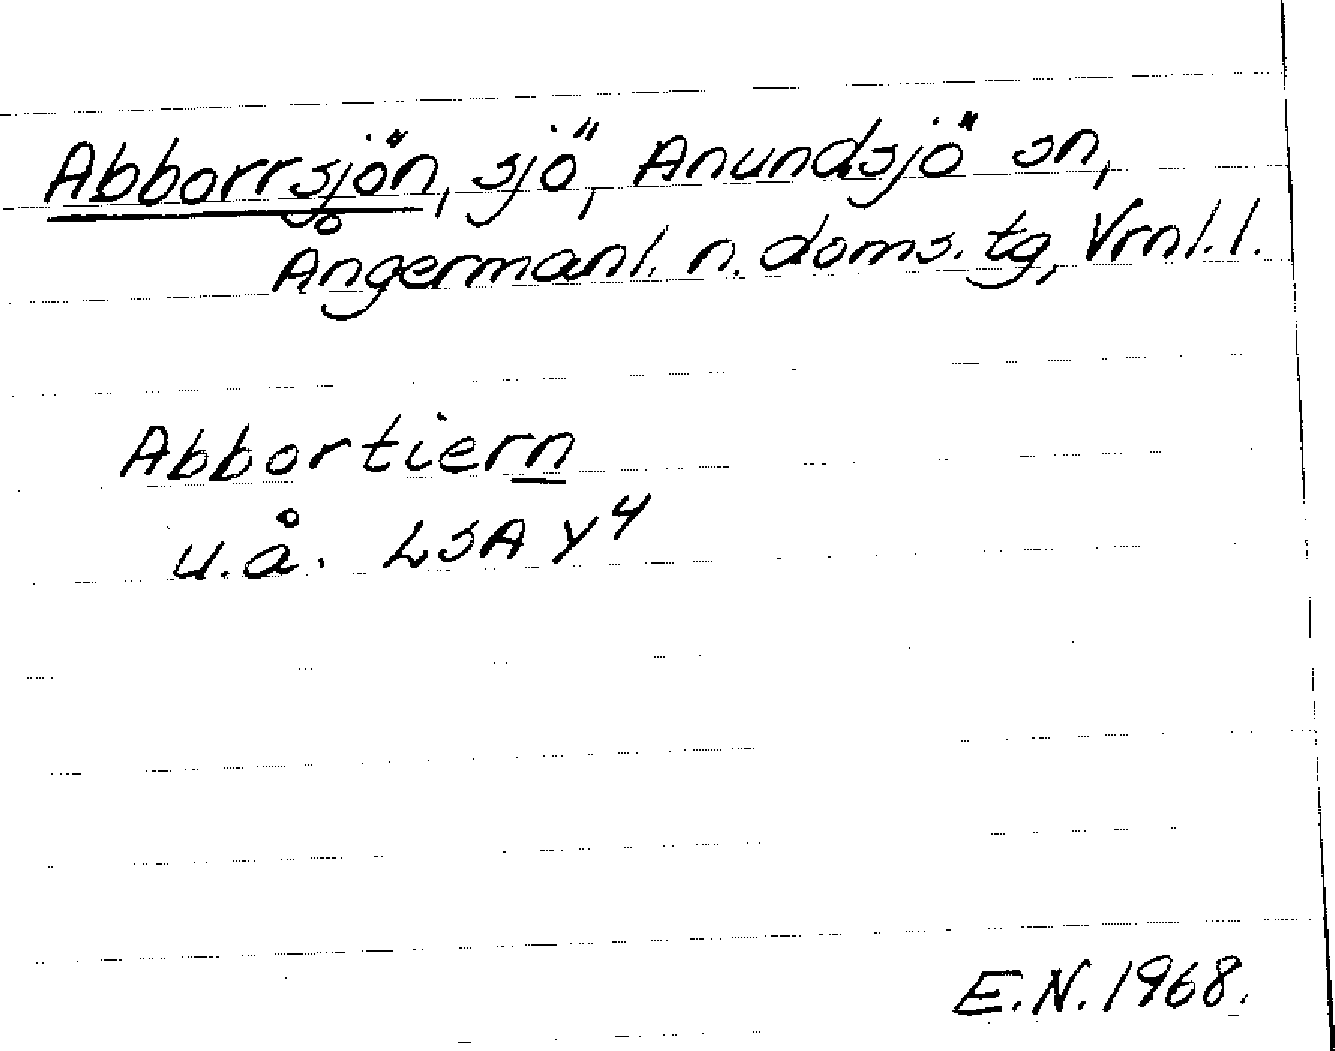 Abborrsjön, sjö, Anundsjö sn,
Ångermanl. n. doms. tg, Vrnl. l.
Abbortiern
u.å. LSA Y4
E.N. 1968.